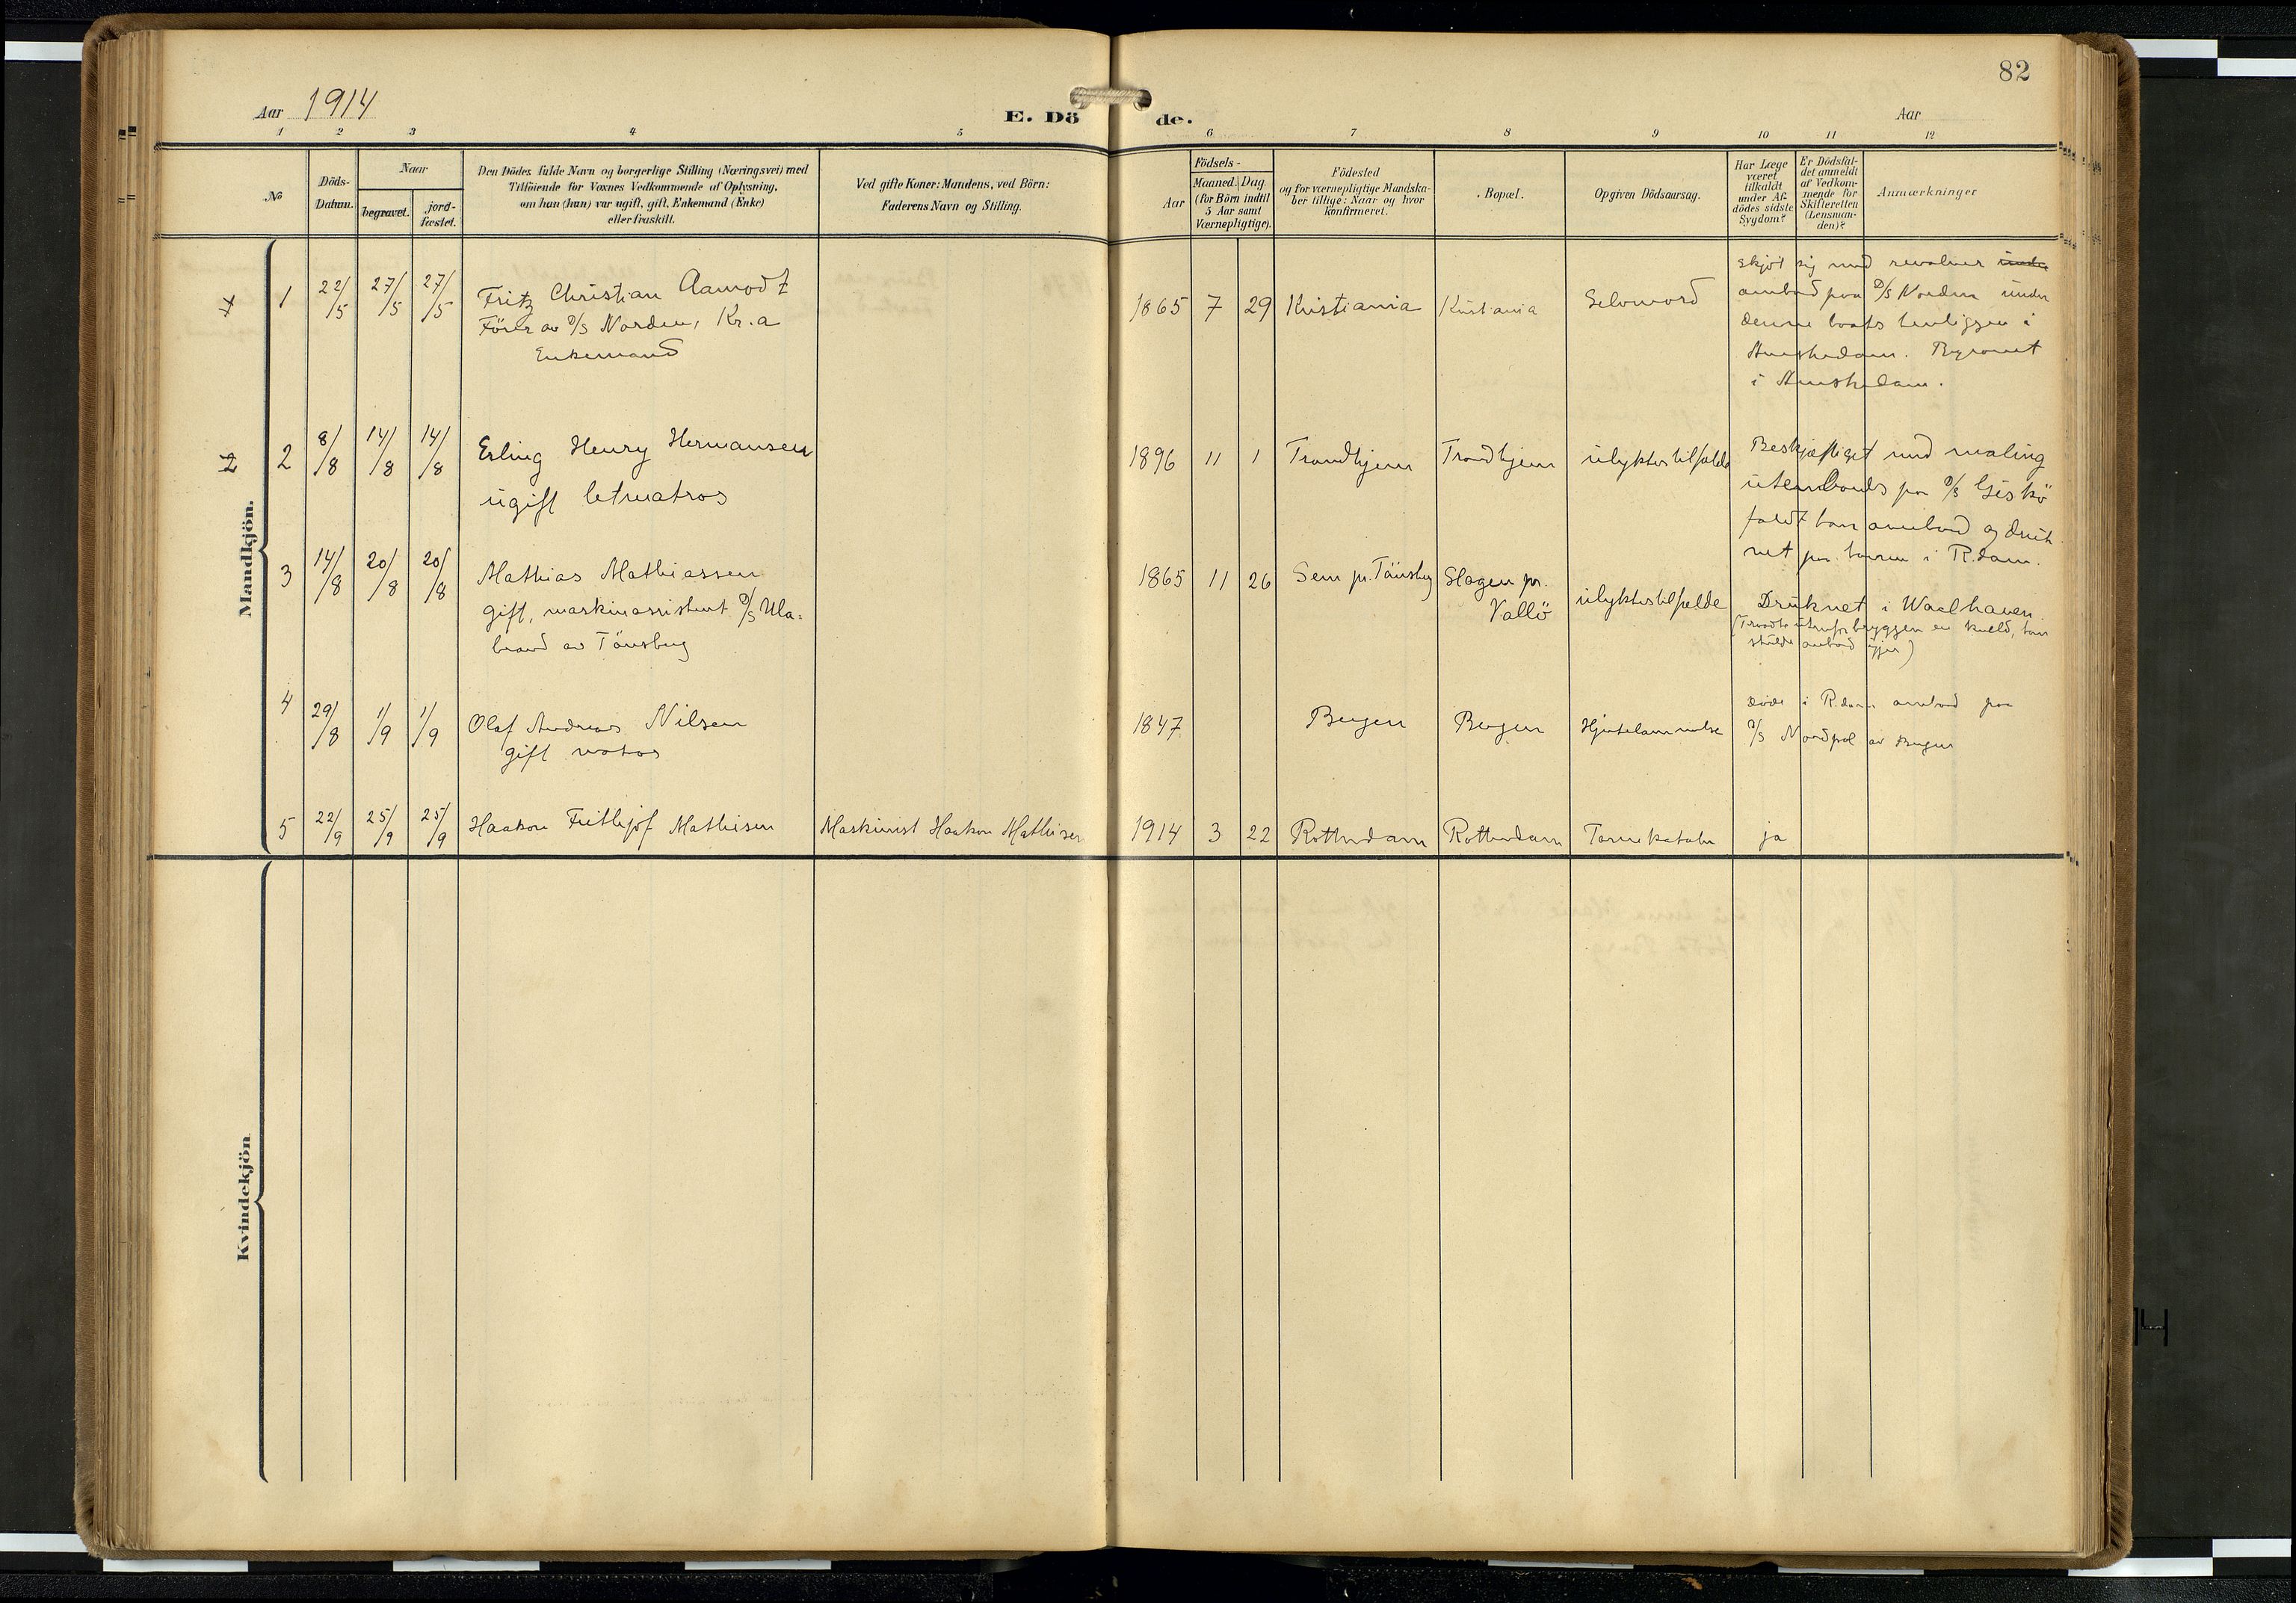 82
Aar 1914
E. Dö de.
Aar
1 2 3 4 5 6 7 8 9 10 11 12
No
Döds-
Datum.
Naar
begravet.
jord-
fæstet.
Den Dödes fulde Navn og borgerlige Stilling (Næringsvei) med
Tilföiende for Voxnes Vedkommende af Oplysning,
om han (hun) var ugift, gift, Enkemand (Enke)
eller fraskilt.
Ved gifte Koner: Mandens, ved Börn:
Faderens Navn og Stilling.
Födsels-
Aar
Maaned. Dag.
(for Börn indtil
5 Aar samt
Værnepligtige).
Födested
og for værnepligtige Mandska-
ber tillige: Naar og hvor
konfirmeret.
Bopæl.
Opgiven Dödsaarsag.
Har Læge
været
tilkaldt
under Af-
dödes sidste
Sygdom?
Er Dödsfal-
det anmeldt
af Vedkom-
mende for
Skifteretten
(Lensman-
den)?
Anmærkninger
Mandkjön.
1 22/5 27/5 27/5
Fritz Christian Aamodt
Förer av D/S Norden, Kr.a
Enkemand
1865 7 29 Kristiania Kristiania Selvmord
skjöt sig med revolver under
ombord paa D/S Norden under
denne baats henliggen i
Amsterdam. Begravet
i Amsterdam.
2
2 8/8 14/8 14/8
Erling Henry Hermansen
ugift letmatros
1896 11 1 Trondhjem Trondhjem ulykkestilfælde
Beskjæftiget med maling
utenbords paa D/S Giskö
faldt han overbord og druk-
net paa havnen i R.dam.
3 14/8 20/8 20/8
Mathias Mathiassen
gift, maskinassistent D/S Ula-
brand av Tönsberg
1865 11 26 Sem pr. Tönsberg Slagen pr.
Vallö
ulykkestilfælde
Druknet i Waalhaven
(Traadte utenfor bryggen en kveld, han
skulde ombord igjen)
4 29/8 1/9 1/9
Olaf Andreas Nilsen
gift
1847 Bergen Bergen Hjertelammelse
döde i R.dam ombord paa
D/S Nordpol av Bergen
5 22/9 25/9 25/9 Haakon Frithjof Mathisen Maskinist Haakon Mathisen
1914 3 22 Rotterdam Rotterdam Tarmkatarh ja
Kvindekjön